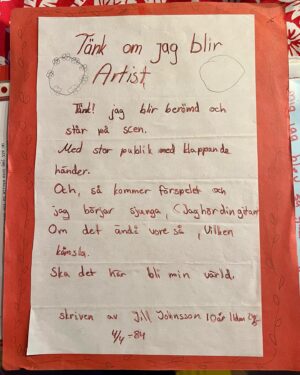 Tänk om jag blir
Artist
Tänk! jag blir berömd och
står på scen.
Med stor publik med klappande
händer.
Och, så kommer förspelet och
jag börjar sjunga, (Jag hör din gitarr
Om det ändå vore så, Vilken
känsla.
Ska det här bli min värld.
skriven av Jill Johnsson 10år
4/4 -84